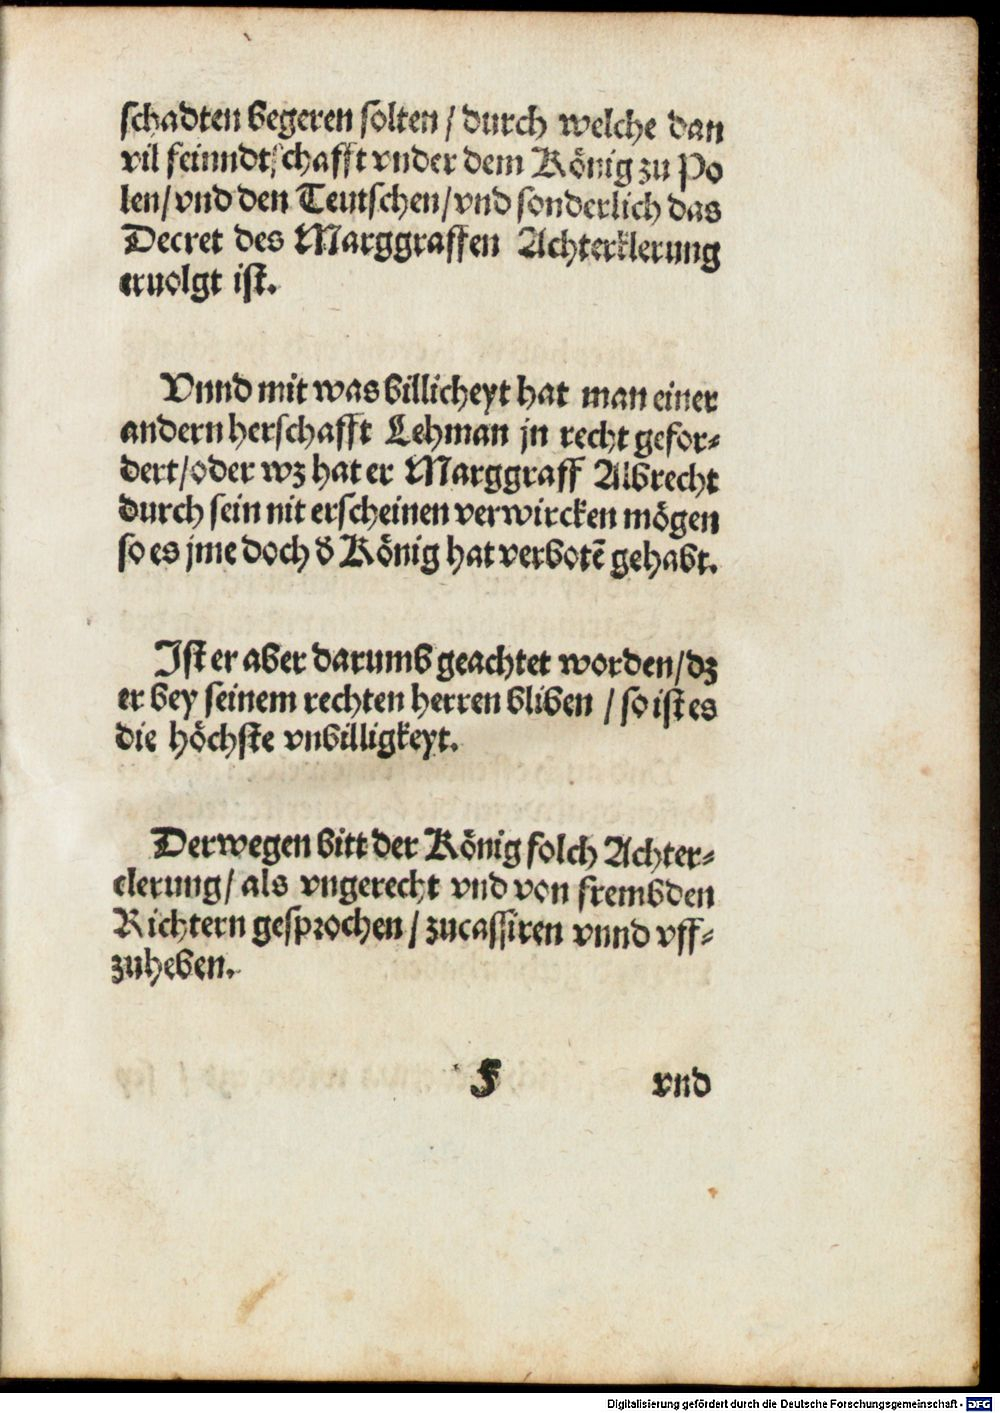 schadten begeren solten / durch welche dan
vil feinndtschafft vnder dem König zu Po
len / vnd den Teutschen / vnd sonderlich das
Decret des Marggraffen Achterklerung
eruolgt ist.
Vnnd mit was billicheyt hat man einer
andern herschafft Lehman jn recht gefor-
dert / oder wz hat er Marggraff Albrecht
durch sein nit erscheinen verwircken mögen
so es jme doch d̕ König hat verbotẽ gehabt.
Ist er aber darumb geachtet worden / dz
er bey seinem rechten herren bliben / so ist es
die höchste vnbilligkeyt.
Derwegen bitt der König solch Achter-
clerung / als vngerecht vnd von frembden
Richtern gesprochen / zucassiren vnnd vff-
zuheben.
F vnd
Digitalisierung gefördert durch die Deutsche Forschungsgemeinschaft - DFG